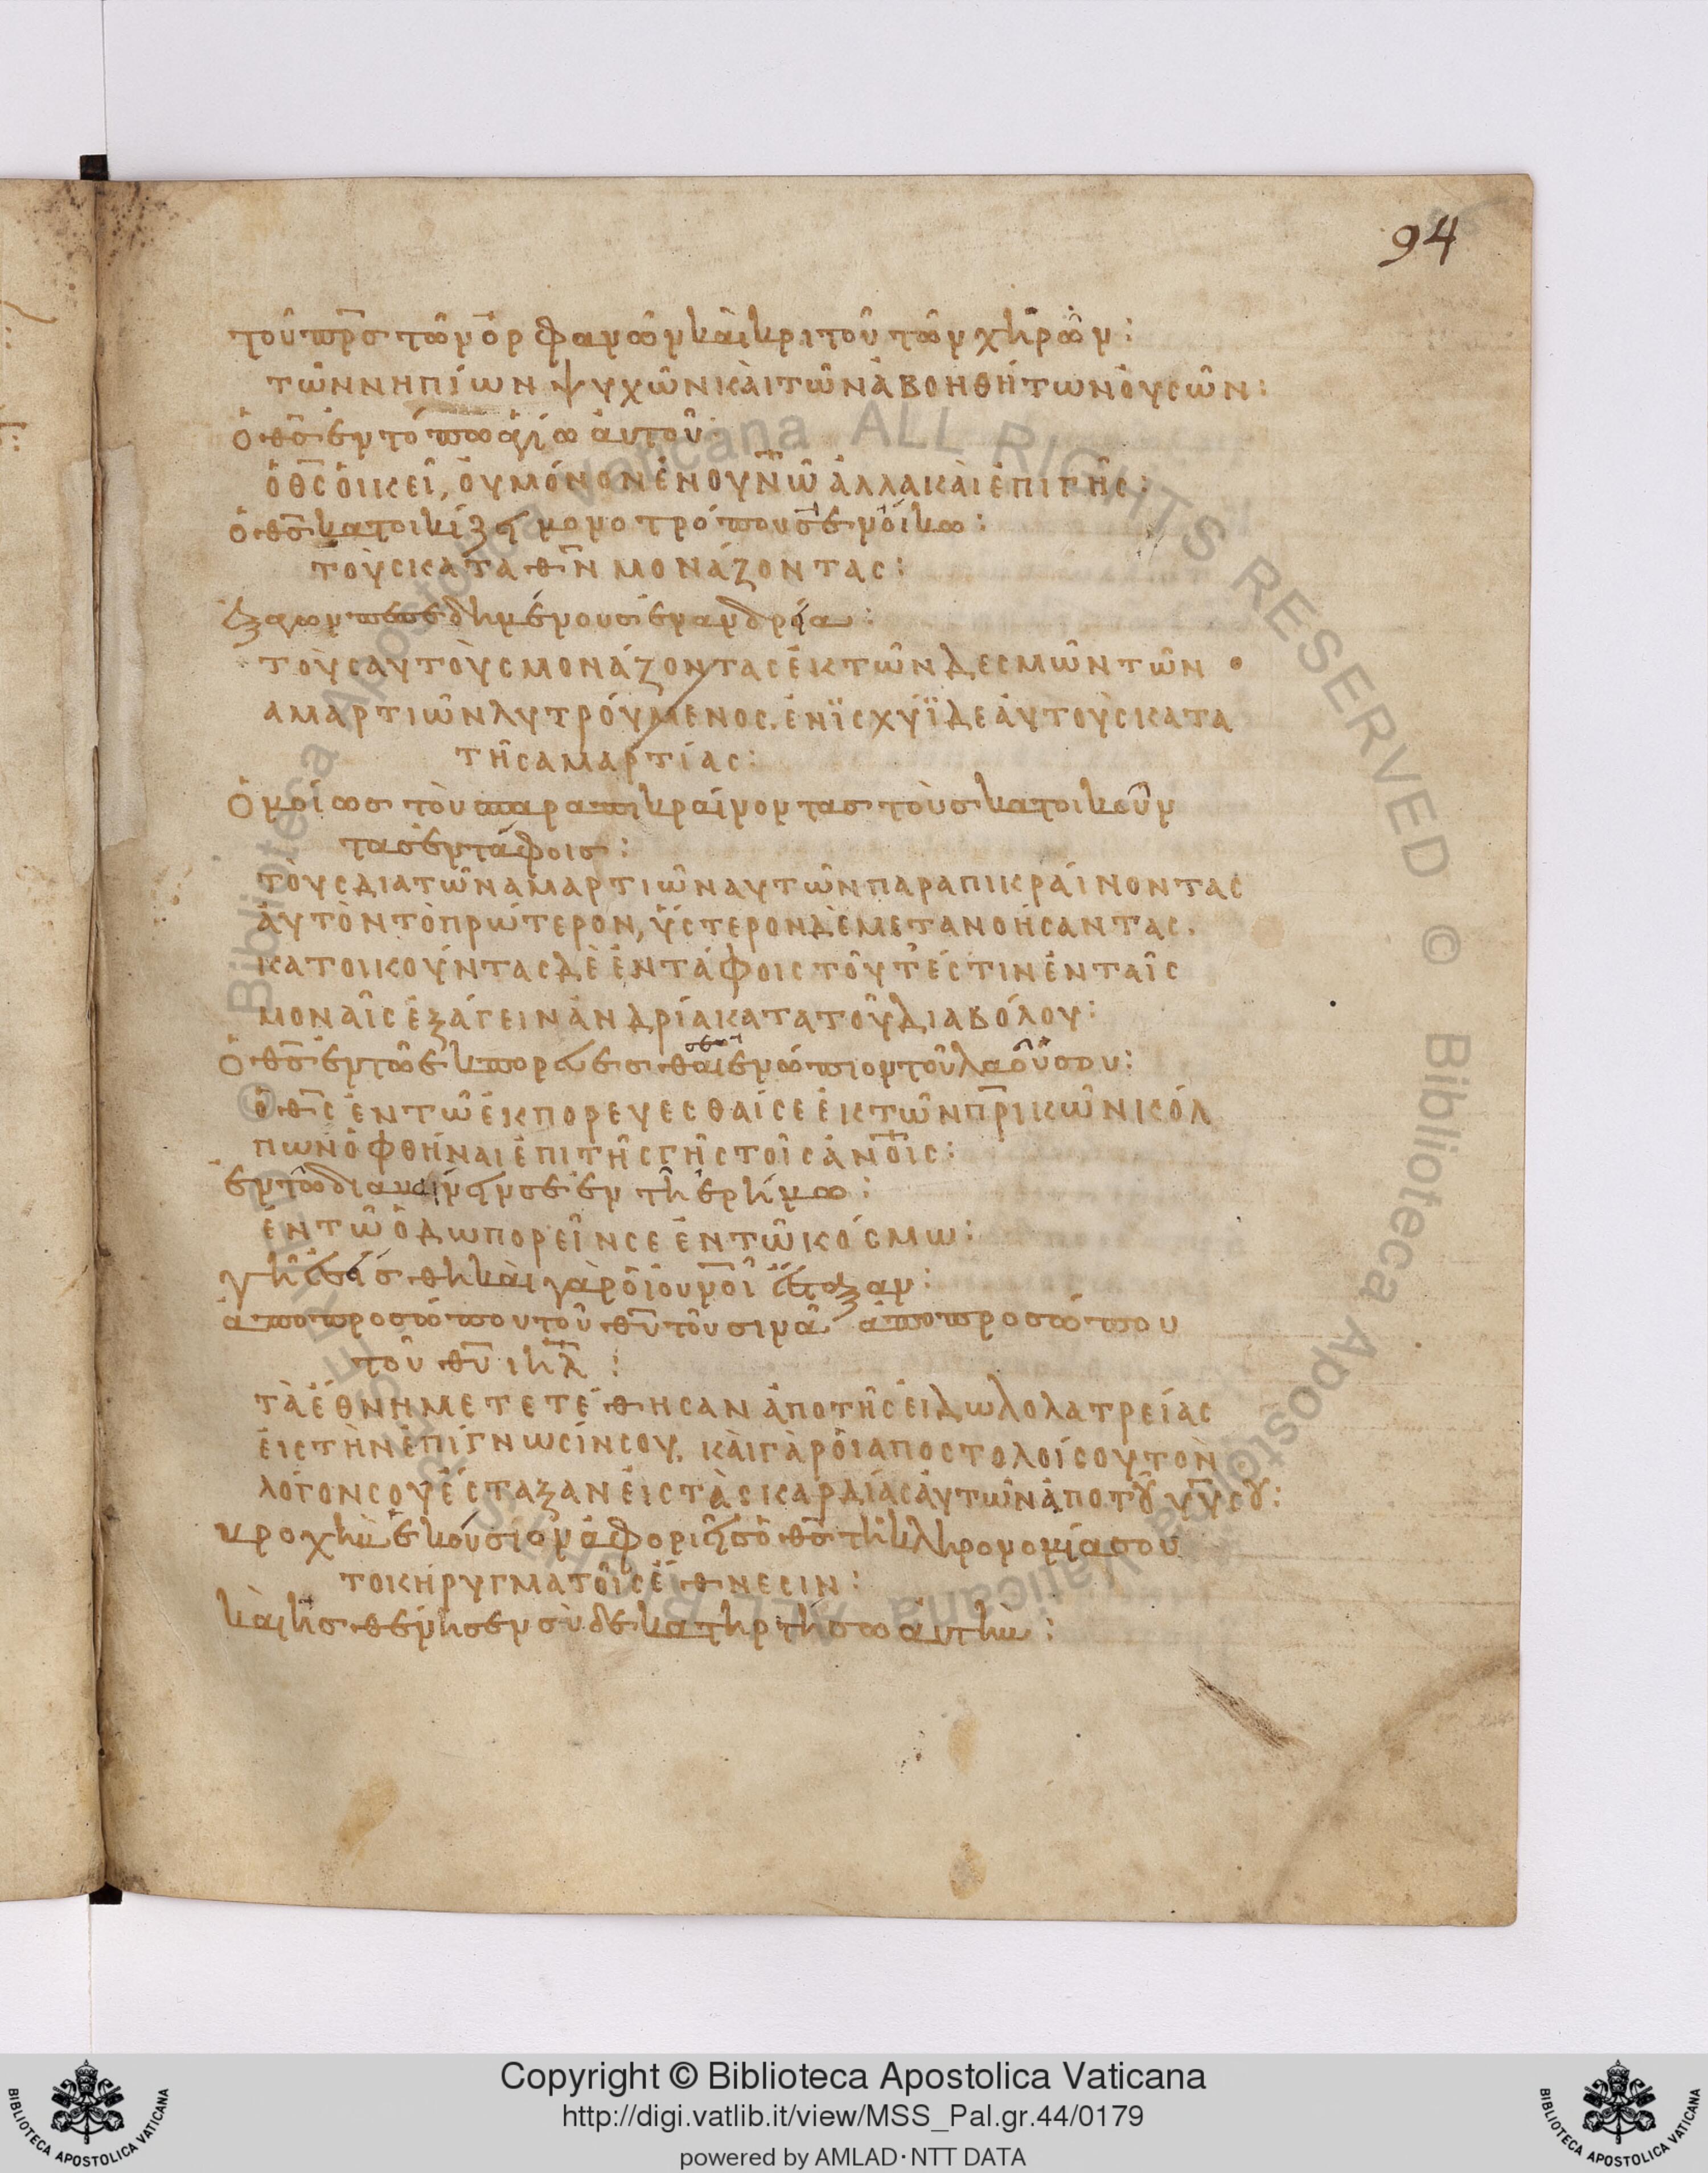 94
τοῦ πρ̅σ τῶν ὀρφανῶν καὶ κριτοῦ τῶν χηρῶν:
ΤῶΝ ΝΗΠίωΝ ΨΥΧῶΝ ΚΑὶ ΤῶΝ ἀΒΟΗΘήΤωΝ ΟΥϹῶΝ:
ὁ θ̅σ ἐν τόπω ἁγίω ἀυτοῦ:
ὁ Θ̅Ϲ ὀΙΚΕῖ, ὀΥ ΜόΝΟΝ ἐΝ ΟΥΝ̅ω̅ ἀΛΛΑ ΚΑὶ ἐΠΙ ΓῆϹ:
ὁ θ̅σ κατοικίζει μονοτρόπουσ ἐν ὀίκω:
ΤΟὺϹ ΚΑΤΑ Θ̅Ν̅ ΜΟΝάΖΟΝΤΑϹ:
ἐξάγων πεπεδημένουσ ἐν ανδρία:
ΤΟὺϹ ΑΥΤΟὺϹ ΜΟΝάΖΟΝΤΑϹ ἐΚ ΤῶΝ ΔΕϹΜῶΝ ΤῶΝ
ΑΜΑΡΤΙῶΝ ΛΥΤΡόΥΜΕΝΟϹ. ἐΝΪϹΧύΪ ΔΕ ἀΥΤΟὺϹ ΚΑΤΑ
ΤῆϹ ΑΜΑΡΤίΑϹ:
ὁμοίωσ τὸυ παραπικραίνοντασ τοὺσ κατοικοῦν
τασ ἐν τάφοισ:
ΤΟὺϹ ΔΙΑ ΤῶΝ ΑΜΑΡΤΙῶΝ ΑΥΤῶΝ ΠΑΡΑΠΙΚΡΑίΝΟΝΤΑϹ
ἀΥΤὸΝ ΤὸΠΡώΤΕΡΟΝ, ὕϹΤΕΡΟΝ ΔὲΜΕΤΑΝΟήϹΑΝΤΑϹ.
ΚΑΤΟΙΚΟύΝΤΑϹ ΔὲἐΝ ΤάΦΟΙϹ ΤΟῦΤ̓ἐϹΤΙΝ ἐΝ ΤΑῖϹ
ΜΟΝΑῖϹ ἐΞάΓΕΙΝ ἀΝΔΡίΑ ΚΑΤΑ ΤΟῦ ΔΙΑΒόΛΟΥ:
ὁ θ̅σ ἐν τῶ ἐκπορεύεσθαί σε ἐνώπιον τοῦ λαοῦ σου:
ὁ Θ̅Ϲ ἐΝ Τῶ ἐΚΠΟΡΕΥΕϹΘΑί ϹΕ ἐΚ ΤῶΝ ΠΡ̅ΙΚῶΝ ΚόΛ
ΠωΝ ὀΦΘΗΝΑΙ ἐΠΙ ΤῆϹ ΓῆϹ ΤΟῖϹ ἀΝ̅Ο̅ΙϹ:
ἐν τῶ διαβαίνειν σε ἐν τῆ ἐρήμω:
ἐΝ Τῶ ὁΔωΠΟΡΕῖΝ ϹΕ ἐΝ Τῶ ΚόϹΜω:
γῆ ἐσείσθη καὶ γὰρ ὁι ουν̅οι ἔσταξαν:
ἀπο προσώπου τοῦ θ̅υ τοῦ σινᾶ ἀπο προσώπου
τοῦ θ̅υ ιη̅λ:
Τὰ ἔΘΝΗ ΜΕΤΕΤέΘΗϹΑΝ ἀΠΟ ΤῆϹ ἐΙΔωΛΟΛΑΤΡΕίΑϹ
ἐΙϹ ΤὴΝ ἐΠίΓΝωϹίΝ ϹΟΥ, ΚΑὶ ΓὰΡ ὁΙ ΑΠΟϹΤΟΛΟί ϹΟΥ ΤΟΝ
ΛόΓΟΝ ϹΟΥ ἔϹΤΑΞΑΝ ἐΙϹ Τὰϲ ΚΑΡΔίΑϹ ἀΥΤῶΝ ἀΠΟ ΤΟῦ Υ̅Υ̅ ϹΟΥ:
βροχὴν ἑκούσιον ἀφοριεῖσ ὁ θ̅σ τῆ κληρονομία σου
ΤΟ ΚήΡΥΓΜΑ ΤΟῖϹ ἔΘΝΕϹΙΝ:
καὶ ησθένησεν σὺ δε κατηρτήσω ἀυτὴν:
Copyright © Biblioteca Apostolica Vaticana
http://digi.vatlib.it/view/MSS_Pal.gr.44/0179
powered by AMLAD·NTT DATA